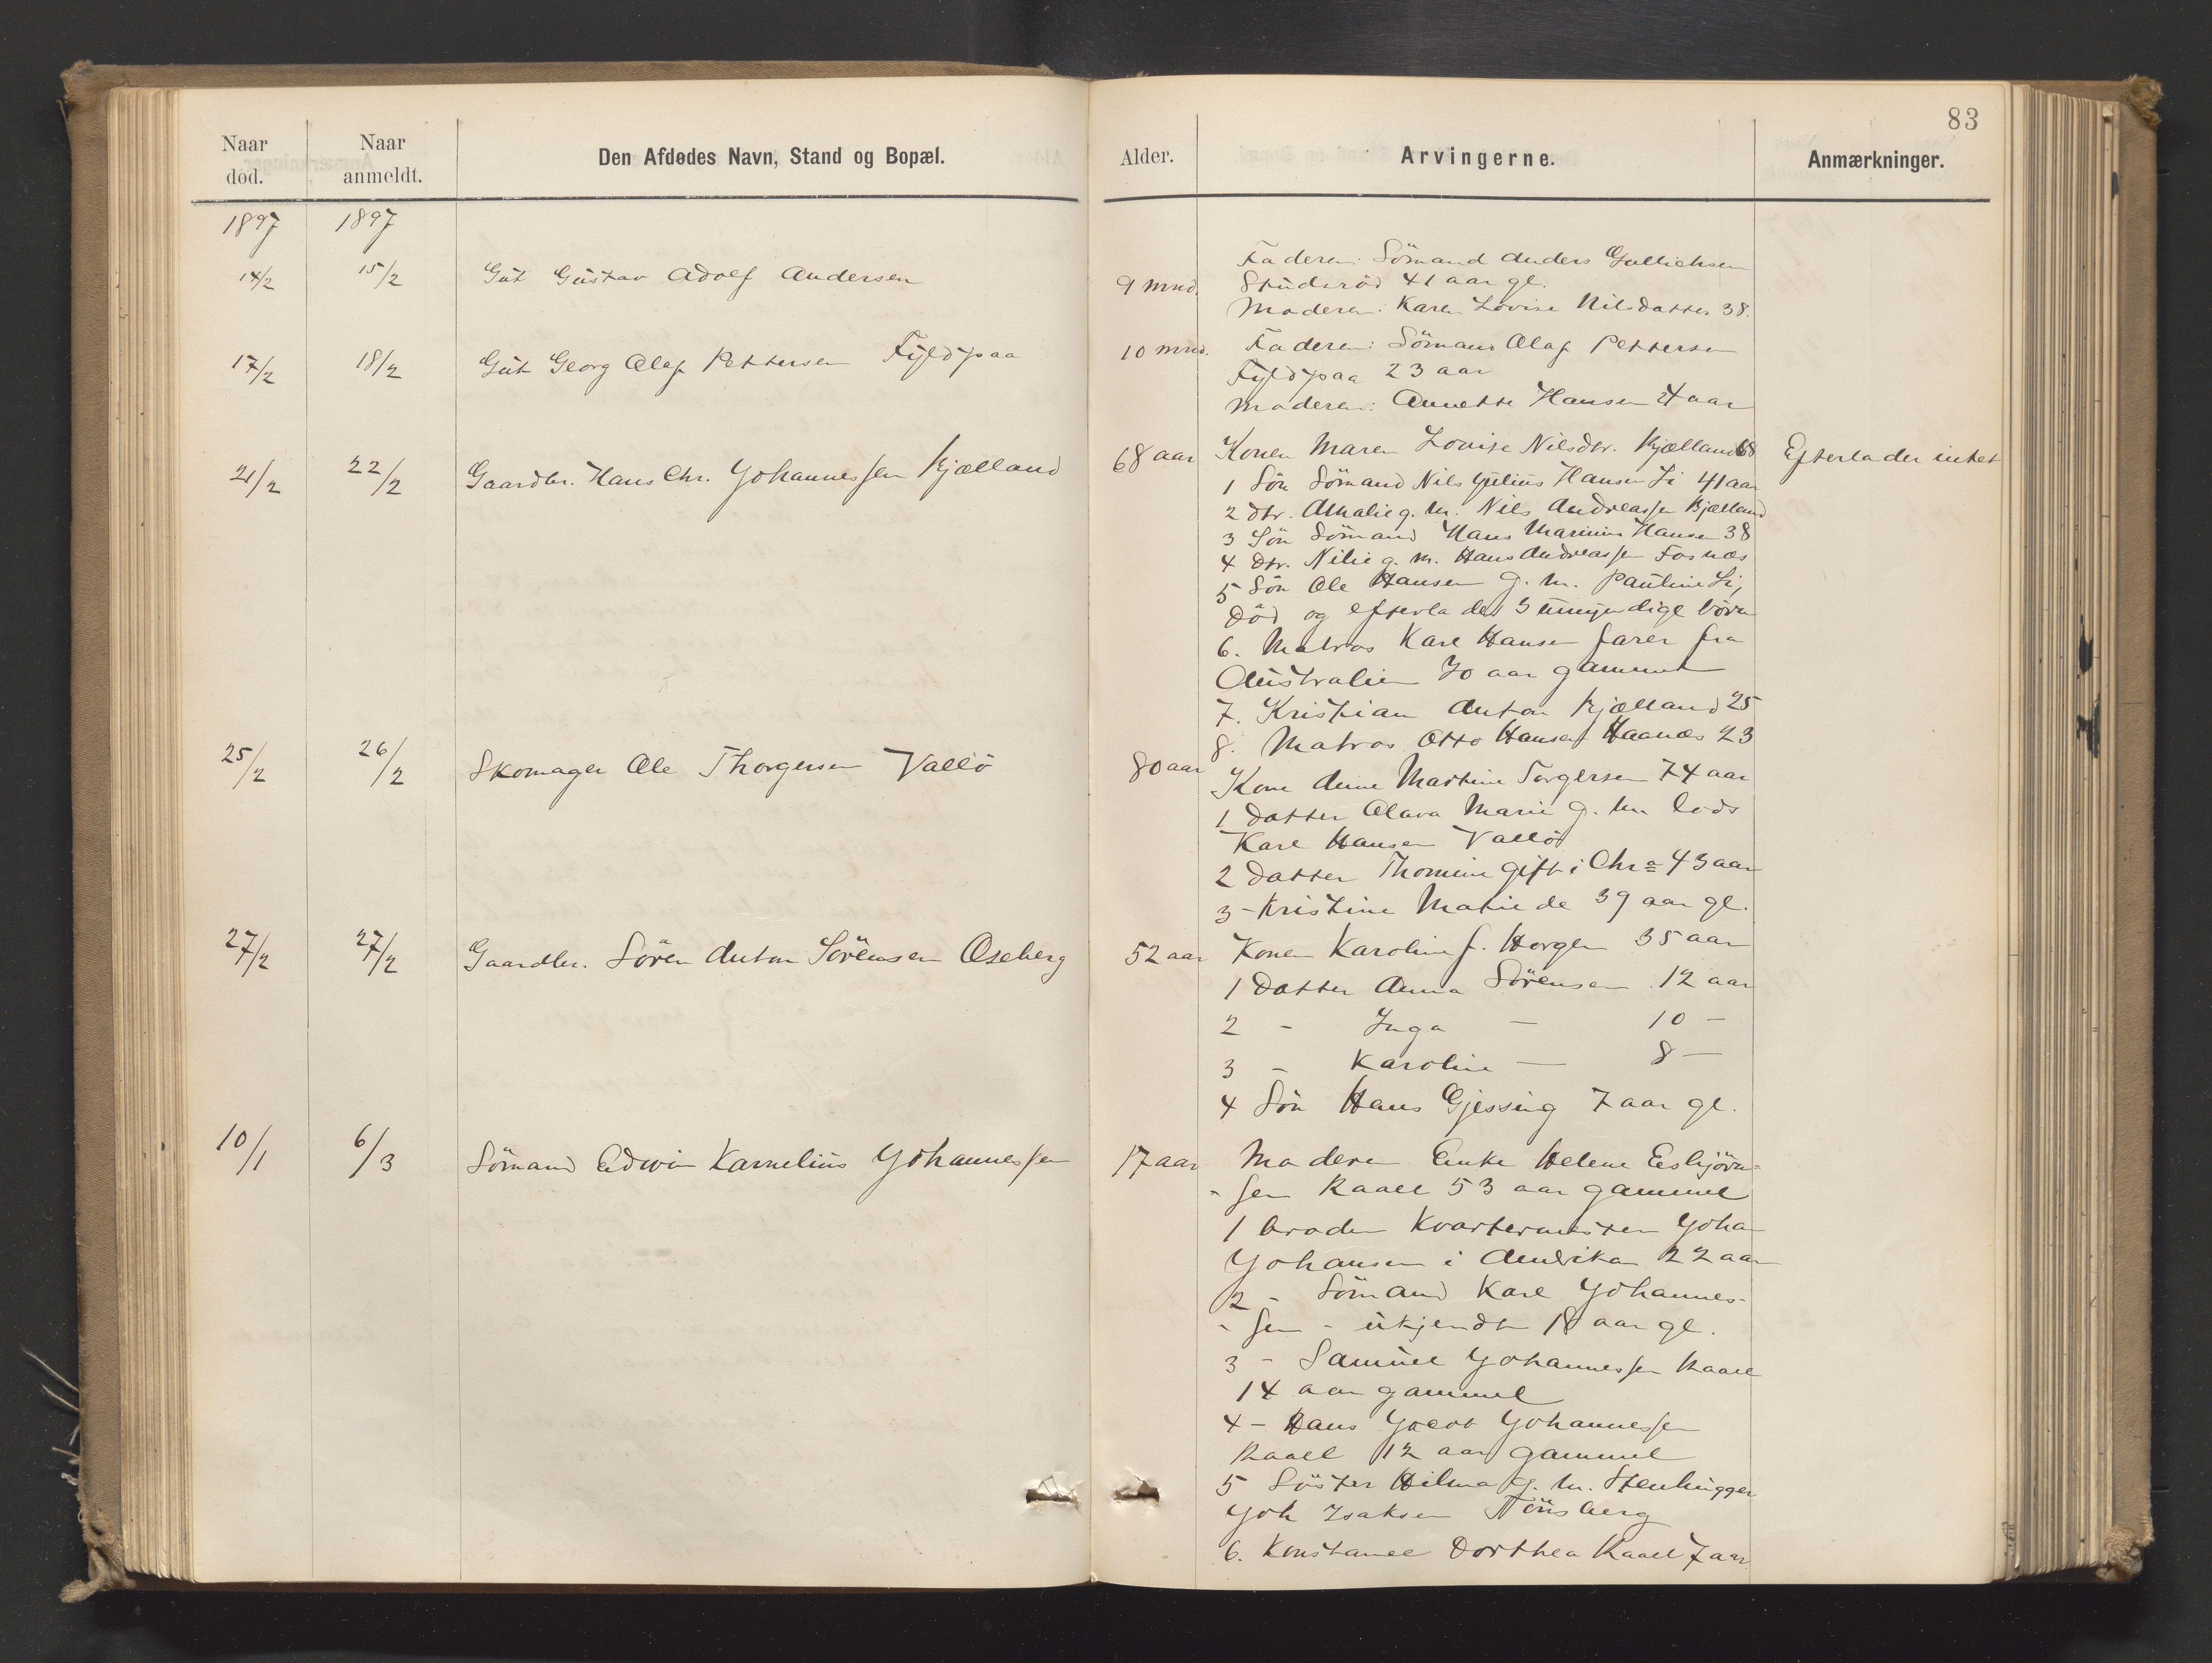 83
Naar død.
Naar anmeldt.
Den Afdødes Navn, Stand og Bopæl.
Alder.
Arvingerne.
Anmærkninger.
1897 1897
14/2 15/2 Gut Gustav Adolf Andersen 9 mnd.
Faderen: Sömand Anders Gullichsen
Studsrød 41 aar gl.
Moderen: Karen Lovise Nilsdatter 38.
17/2 18/2 Gut Georg Olaf Pettersen Fyldpaa 10 mnd.
Faderen: Sömand Olaf Pettersen
Fyldpaa 23 aar
Moderen: Annette Hansen 24 aar
21/2 22/2 Gaardbr. Hans Chr. Johannessen Kjælland 68 aar
Konen Maren Lovise Nilsdtr. Kjælland 68
Efterlader intet
1 Sön Sömand Nils Julius Hansen Li 41 aar
2 dtr. Amalie g. m. Nils Andreassen Kjælland
3 Sön Sömand Hans Marinius Hansen 38
4 Dtr. Nilie g. m. Hans Andreassen Fosnæs
5 Sön Ole Hansen g. m. Pauline Li,
död og efterlader 3 umyndige börn
6. Matros Karl Hansen farer fra
Australien 30 aar gammel
7. Kristian Anton Kjælland 25
8. Matros Otto Hansen Haanæs 23
25/2 26/2 Skomager Ole Thorgersen Vallö 80 aar
Kone Anne Martine Torgersen 74 aar
1 Datter Olava Marie g. m. lods
Karl Hansen Vallö
2 Datter Thomine gift i Chra 43 aar
3 - Kristine Matilde 39 aar gl.
27/2 27/2 Gaardbr. Sören Anton Sörensen Oseberg 52 aar
Konen Karoline f. Horgen 35 aar
1 Datter Anna Sörensen 12 aar
2 - Inga — 10 -
3 - Karoline — 8 —
4 Sön Hans Gjessing 7 aar gl.
10/1 6/3 Sömand Edwin Karnelius Johannessen 17 aar
Moderen Enke Helene Esbjörn-
-sen Raael 53 aar gammel
1 broder Kvartermester Joha
Johansen i Amerika 22 aar
2 - Sömand Karl Johannes-
-sen - ukjendt 18 aar gl.
3 - Samuel Johannessen Raael
14 aar gammel
4 - Hans Jacob Johannessen
Raael 12 aar gammel
5 Söster Hilma g. m. Stenhugger
Joh Isaksen Tönsberg
6. Konstance Dorthea Raael 7 aar